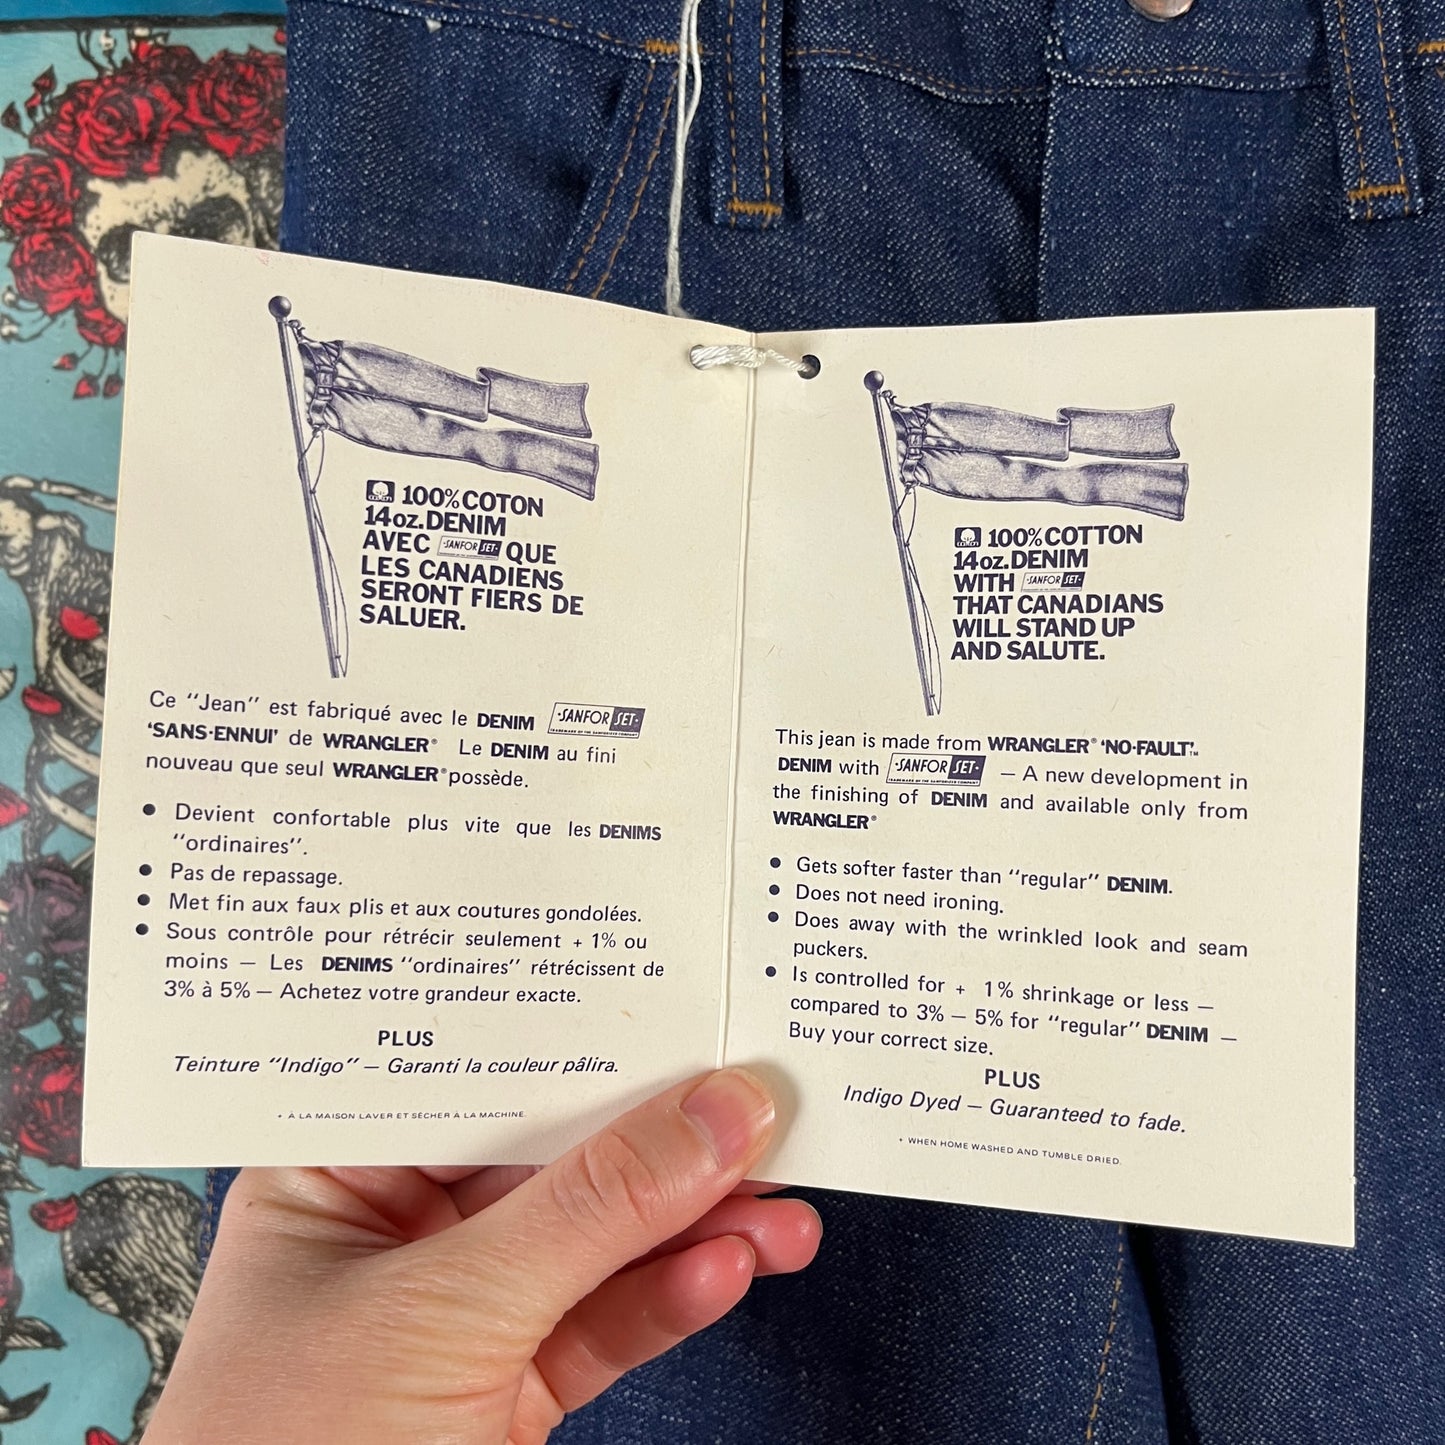 100% COTON
14oz. DENIM
AVEC ·SANFOR SET· QUE
LES CANADIENS
SERONT FIERS DE
SALUER.
Ce "Jean" est fabriqué avec le DENIM ·SANFOR SET·
TRADEMARK OF THE SANFORIZED COMPANY
'SANS-ENNUI' de WRANGLER® Le DENIM au fini
nouveau que seul WRANGLER® possède.
● Devient confortable plus vite que les DENIMS
"ordinaires".
● Pas de repassage.
● Met fin aux faux plis et aux coutures gondolées.
● Sous contrôle pour rétrécir seulement + 1% ou
moins — Les DENIMS "ordinaires" rétrécissent de
3% à 5% — Achetez votre grandeur exacte.
PLUS
Teinture "Indigo" — Garanti la couleur pâlira.
+ À LA MAISON LAVER ET SÉCHER À LA MACHINE.
100% COTTON
14oz. DENIM
WITH ·SANFOR SET·
THAT CANADIANS
WILL STAND UP
AND SALUTE.
This jean is made from WRANGLER® 'NO-FAULT'™
DENIM with ·SANFOR SET· — A new development in
TRADEMARK OF THE SANFORIZED COMPANY
the finishing of DENIM and available only from
WRANGLER®
● Gets softer faster than "regular" DENIM.
● Does not need ironing.
● Does away with the wrinkled look and seam
puckers.
● Is controlled for + 1% shrinkage or less —
compared to 3% — 5% for "regular" DENIM —
Buy your correct size.
PLUS
Indigo Dyed — Guaranteed to fade.
+ WHEN HOME WASHED AND TUMBLE DRIED.